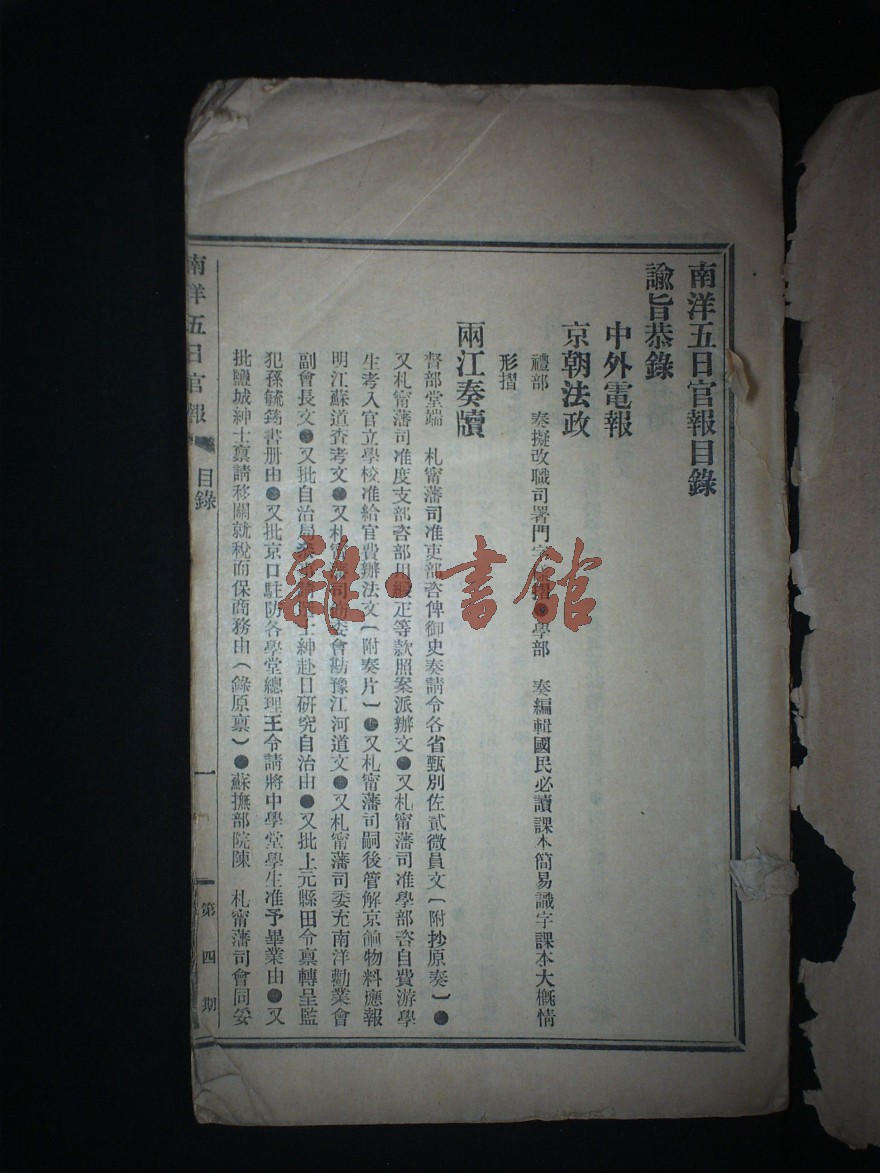 南洋五日官報目錄
諭旨恭錄
中外電報
京朝法政
禮部 奏擬改職司署門字 摺●學部 奏編輯國民必讀課本簡易識字課本大概情
形摺
兩江奏牘
督部堂端 札甯藩司准吏部咨俾御史奏請令各省甄別佐貳微員文(附抄原奏)●
又札甯藩司准度支部咨部用緞疋等款照案派辦文●又札甯藩司准學部咨自費游學
生考入官立學校准給官費辦法文(附奏片)●又札甯藩司嗣後管解京餉物料應報
明江蘇道查考文●又札甯藩司 委會勘豫江河道文●又札甯藩司委充南洋勸業會
副會長文●又批自治局 士紳赴日研究自治由●又批上元縣田令稟轉呈監
犯孫毓筠書册由●又批京口駐防各學堂總理王令請將中學堂學生准予畢業由●又
批鹽城紳士稟請移關就稅而保商務由(錄原稟)●蘇撫部院陳 札甯藩司會同妥
南洋五日官報 目錄 一 第四期
雜·書館